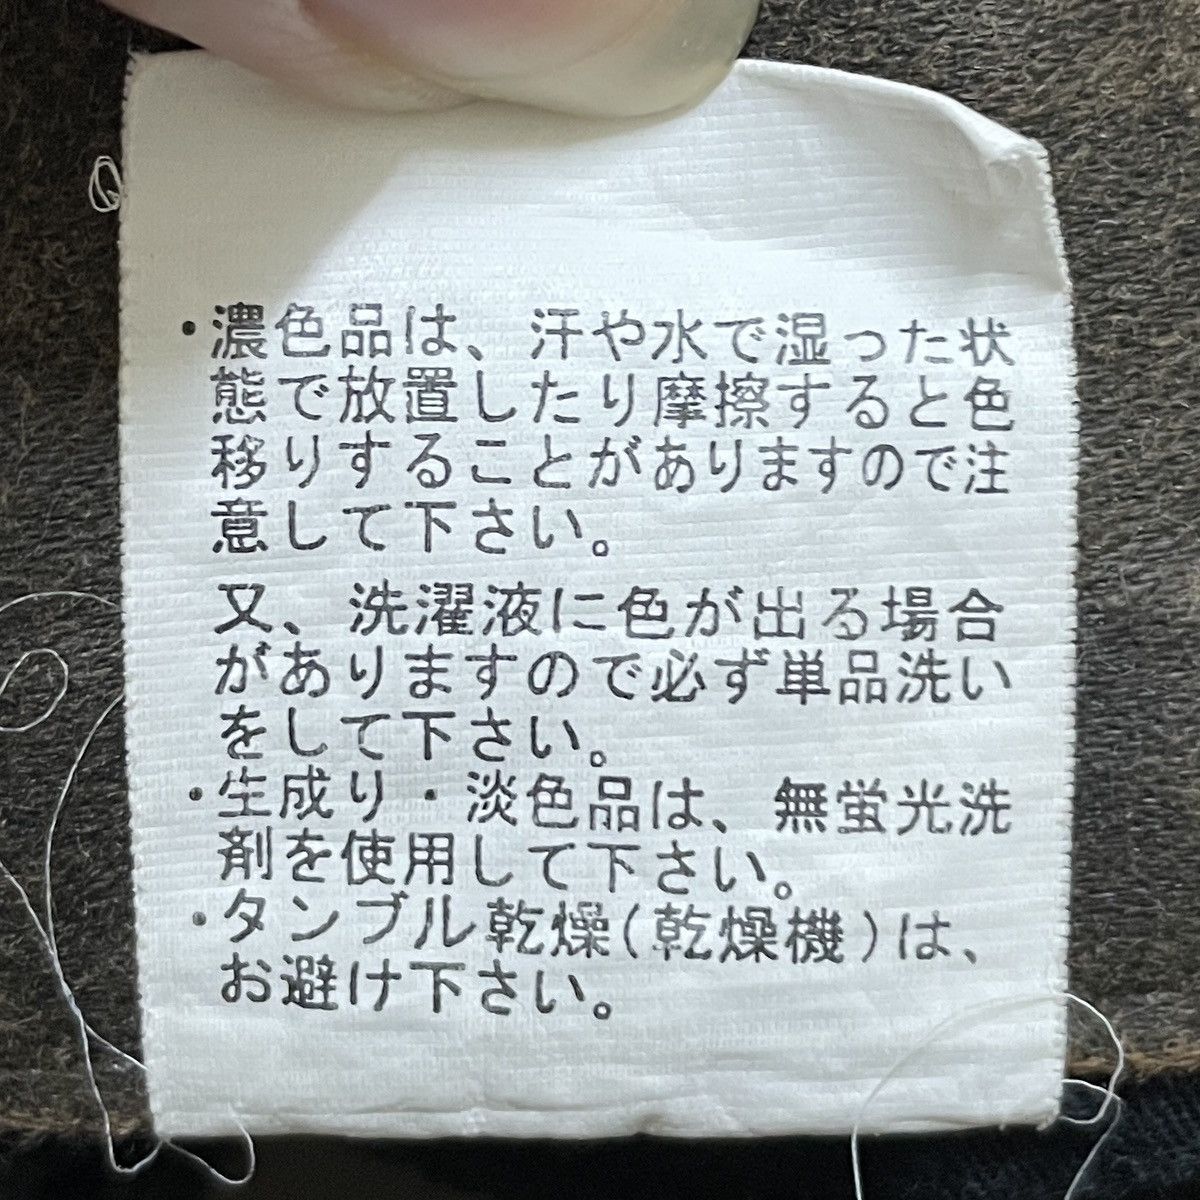 ・濃色品は、汗や水で湿った状
態で放置したり摩擦すると色
移りすることがありますので注
意して下さい。
又、洗濯液に色が出る場合
がありますので必ず単品洗い
をして下さい。
・生成り・淡色品は、無蛍光洗
剤を使用して下さい。
・タンブル乾燥(乾燥機)は、
お避け下さい。